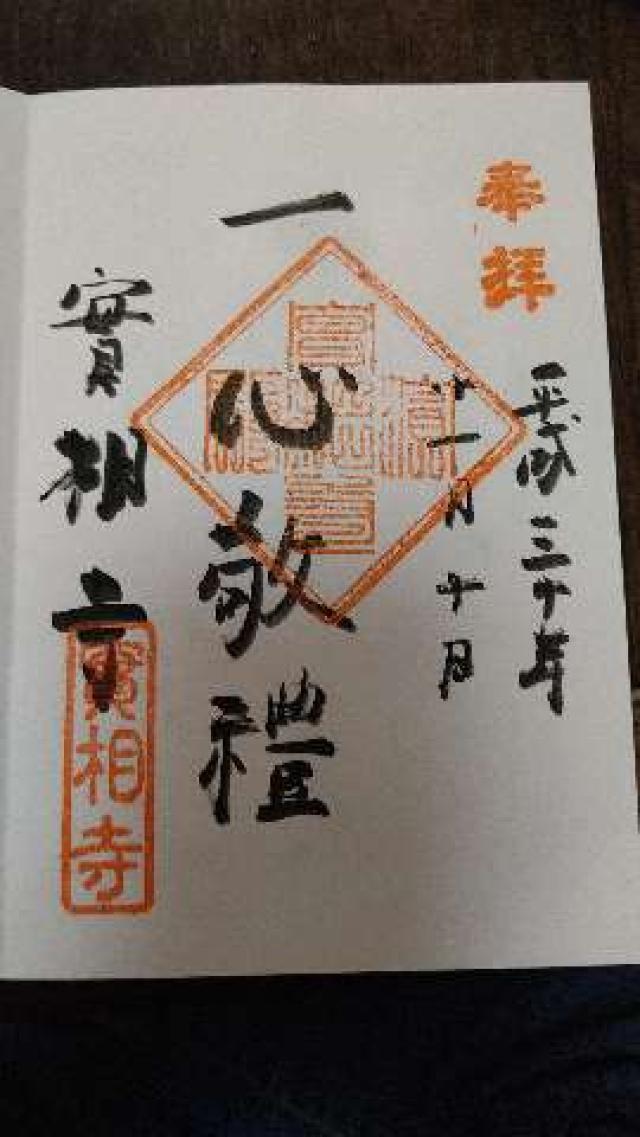 奉拝
平成三十年
十一月十日
一心敬禮
實相寺
實相寺